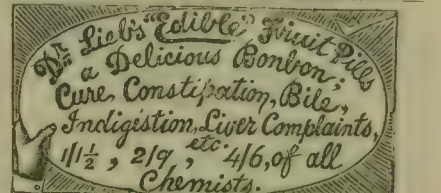 Dr Lieb's "Edible" Fruit Pills
a Delicious Bonbon;
Cure, Constipation, Bile,
Indigestion, Liver Complaints,
etc.
1/1½, 2/9, 4/6, of all
Chemists.